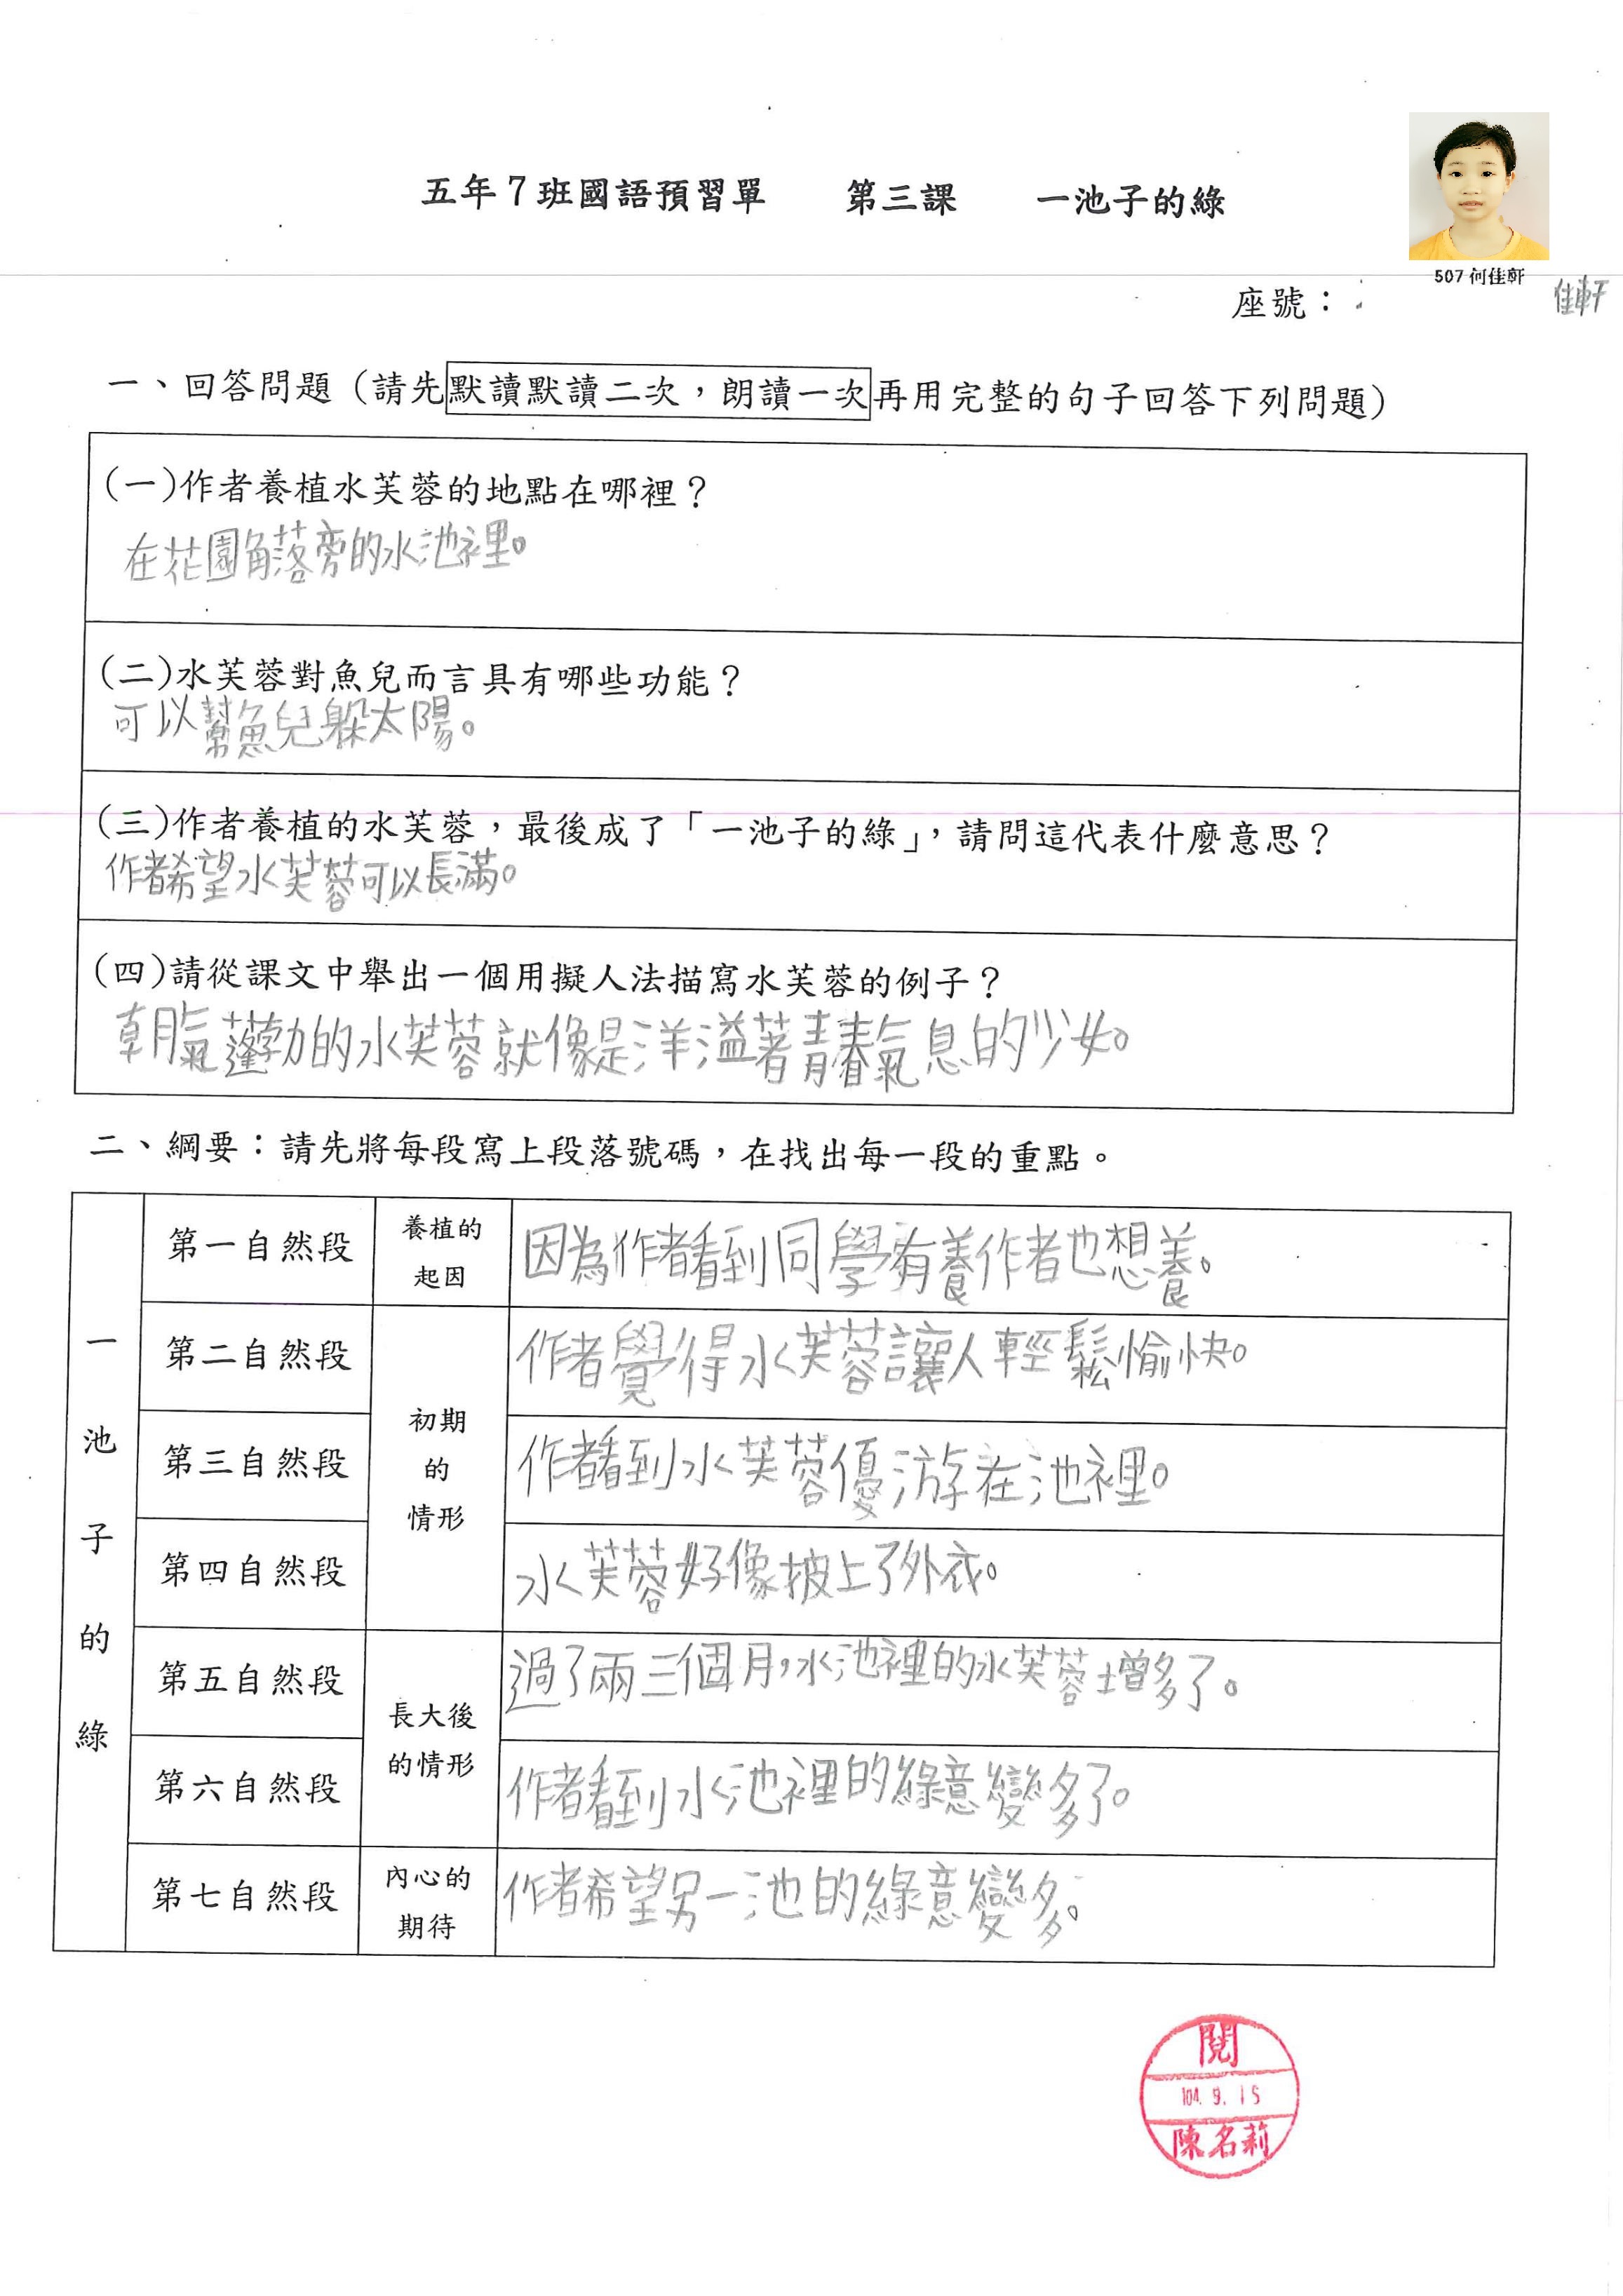 五年7班國語預習單 第三課 一池子的綠
507 何佳軒
座號： 佳軒
一、回答問題（請先默讀默讀二次，朗讀一次再用完整的句子回答下列問題）
(一)作者養植水芙蓉的地點在哪裡？
在花園角落旁的水池裡。
(二)水芙蓉對魚兒而言具有哪些功能？
可以幫魚兒躲太陽。
(三)作者養植的水芙蓉，最後成了「一池子的綠」，請問這代表什麼意思？
作者希望水芙蓉可以長滿。
(四)請從課文中舉出一個用擬人法描寫水芙蓉的例子？
朝氣蓬勃的水芙蓉就像是洋溢著青春氣息的少女。
二、綱要：請先將每段寫上段落號碼，在找出每一段的重點。
一池子的綠
第一自然段 養植的起因 因為作者看到同學有養作者也想養。
第二自然段 初期的情形 作者覺得水芙蓉讓人輕鬆愉快。
第三自然段 作者看到水芙蓉優游在池裡。
第四自然段 水芙蓉好像披上了外衣。
第五自然段 長大後的情形 過了兩三個月，水池裡的水芙蓉增多了。
第六自然段 作者看到水池裡的綠意變多了。
第七自然段 內心的期待 作者希望另一池的綠意變多。
閱
104. 9. 15
陳名莉